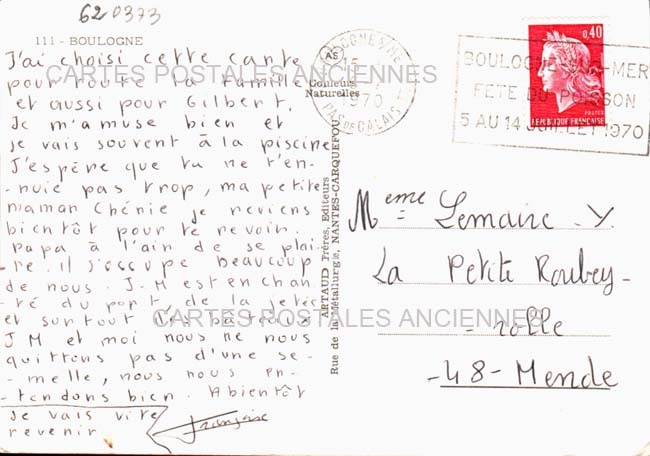 620373
111 - BOULOGNE
J'ai choisi cette carte
pour toute la famille
et aussi pour Gilbert.
Je m'amuse bien et
je vais souvent à la piscine
J'espère que tu ne t'en-
-nuie pas trop, ma petite
maman Chérie je reviens
bientôt pour te revoir.
Papa à l'air de se plai-
-re. il s'occupe beaucoup
de nous. J-M est en chan-
-té du port de la jetée
et surtout des bateaux
J M et moi nous ne nous
quittons pas d'une se-
-melle, nous nous en-
-tendons bien. A bientôt
je vais vite
revenir
Françoise
AS
Couleurs
Naturelles
ARTAUD Frères, Editeurs
Rue de la Métallurgie, NANTES-CARQUEFOU
BOULOGNE S/MER
15
1970
PAS DE CALAIS
BOULOGNE-SUR-MER
FETE DU POISSON
5 AU 14 JUILLET 1970
0,40
POSTES
REPUBLIQUE FRANÇAISE
Meme Lemaire Y.
La Petite Roubey-
-rolle
-48- Mende
CARTES POSTALES ANCIENNES
CARTES POSTALES ANCIENNES